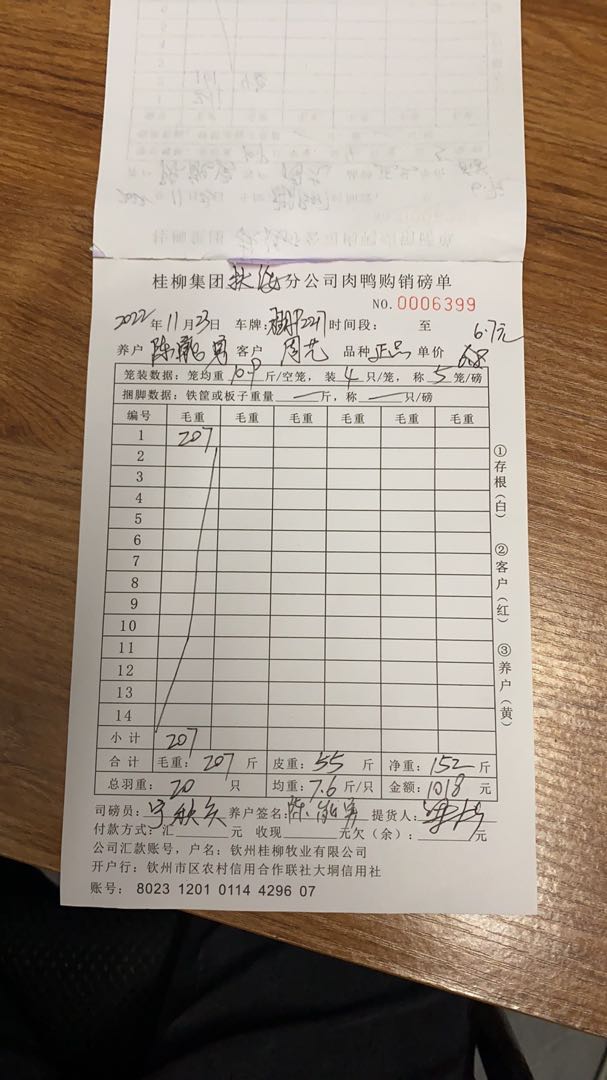 桂柳集团 分公司肉鸭购销磅单
NO.0006399
2022年11月23日 车牌: 时间段: 至 6.7元
养户 陈 勇 客户 周艺 品种 正品 单价 6.8
笼装数据：笼均重 10.9 斤/空笼，装 4 只/笼，称 5 笼/磅
捆脚数据：铁筐或板子重量 — 斤，称 — 只/磅
编号 毛重 毛重 毛重 毛重 毛重 毛重
1 207
2
3
4
5
6
7
8
9
10
11
12
13
14
小计 207
合计 毛重：207 斤 皮重：55 斤 净重：152 斤
总羽重：20 只 均重：7.6 斤/只 金额：1018 元
①存根（白）
②客户（红）
③养户（黄）
司磅员： 养户签名：陈 勇 提货人：
付款方式：汇 元 收现 元欠（余）： 元
公司汇款账号，户名：钦州桂柳牧业有限公司
开户行：钦州市区农村信用合作联社大垌信用社
账号： 8023 1201 0114 4296 07